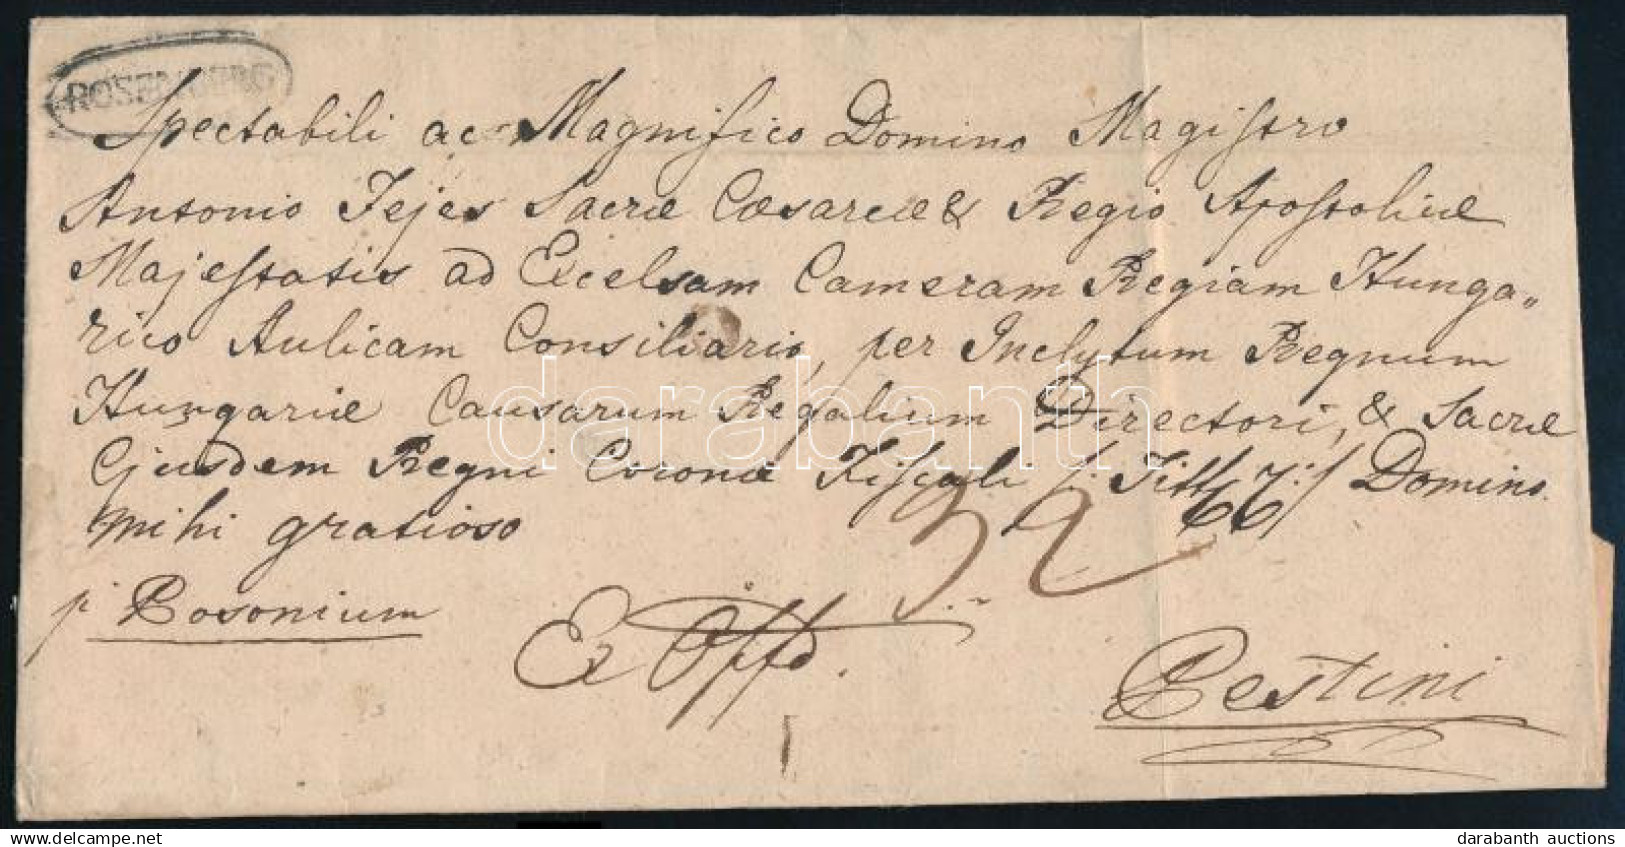 ROSENBERG
Spectabili ac Magnifico Domino Magistro
Antonio Fejes Sacræ Cæsareæ & Regio Apostolicæ
Majestatis ad Excelsam Cameram Regiam Hunga„
rico Aulicam Consiliario, per Inclytum Regnum
Hungariæ Causarum Regalium Directori, & Sacræ
Ejusdem Regni Coronæ Fiscali /: Titl :/ Domino
mihi gratioso
32
p Posonium
Ex Offo.
Pestini
darabanth
darabanth auctions